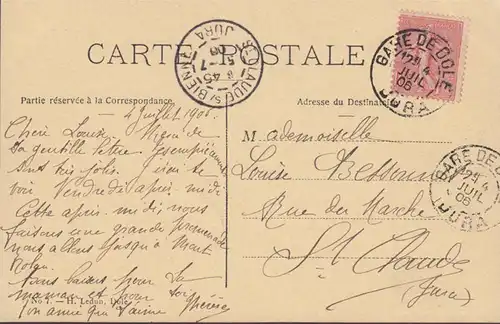 CARTE POSTALE
Partie réservée à la Correspondance.
Adresse du Destinataire
ST CLAUDE S/ BIENNE
6 45
5 -7
06
JURA
GARE DE DOLE
12 4
JUIL
06
JURA
GARE DE DOLE
12 4
JUIL
06
JURA
4 Juillet 1906.
Chère Louise, Merci de
ta gentille lettre
sont très jolis. J'irai te
voir Vendredi après-midi
Cette après-midi, nous
faisons une grande promenade
nous allons jusqu'à Mont
Roland.
Bons baisers pour ta
maman et pour toi
ton amie qui t'aime Thérèse
Mademoiselle
Louise
Rue du Marché
St Claude
(Jura)
No 1. — H. Ledun, Dole.